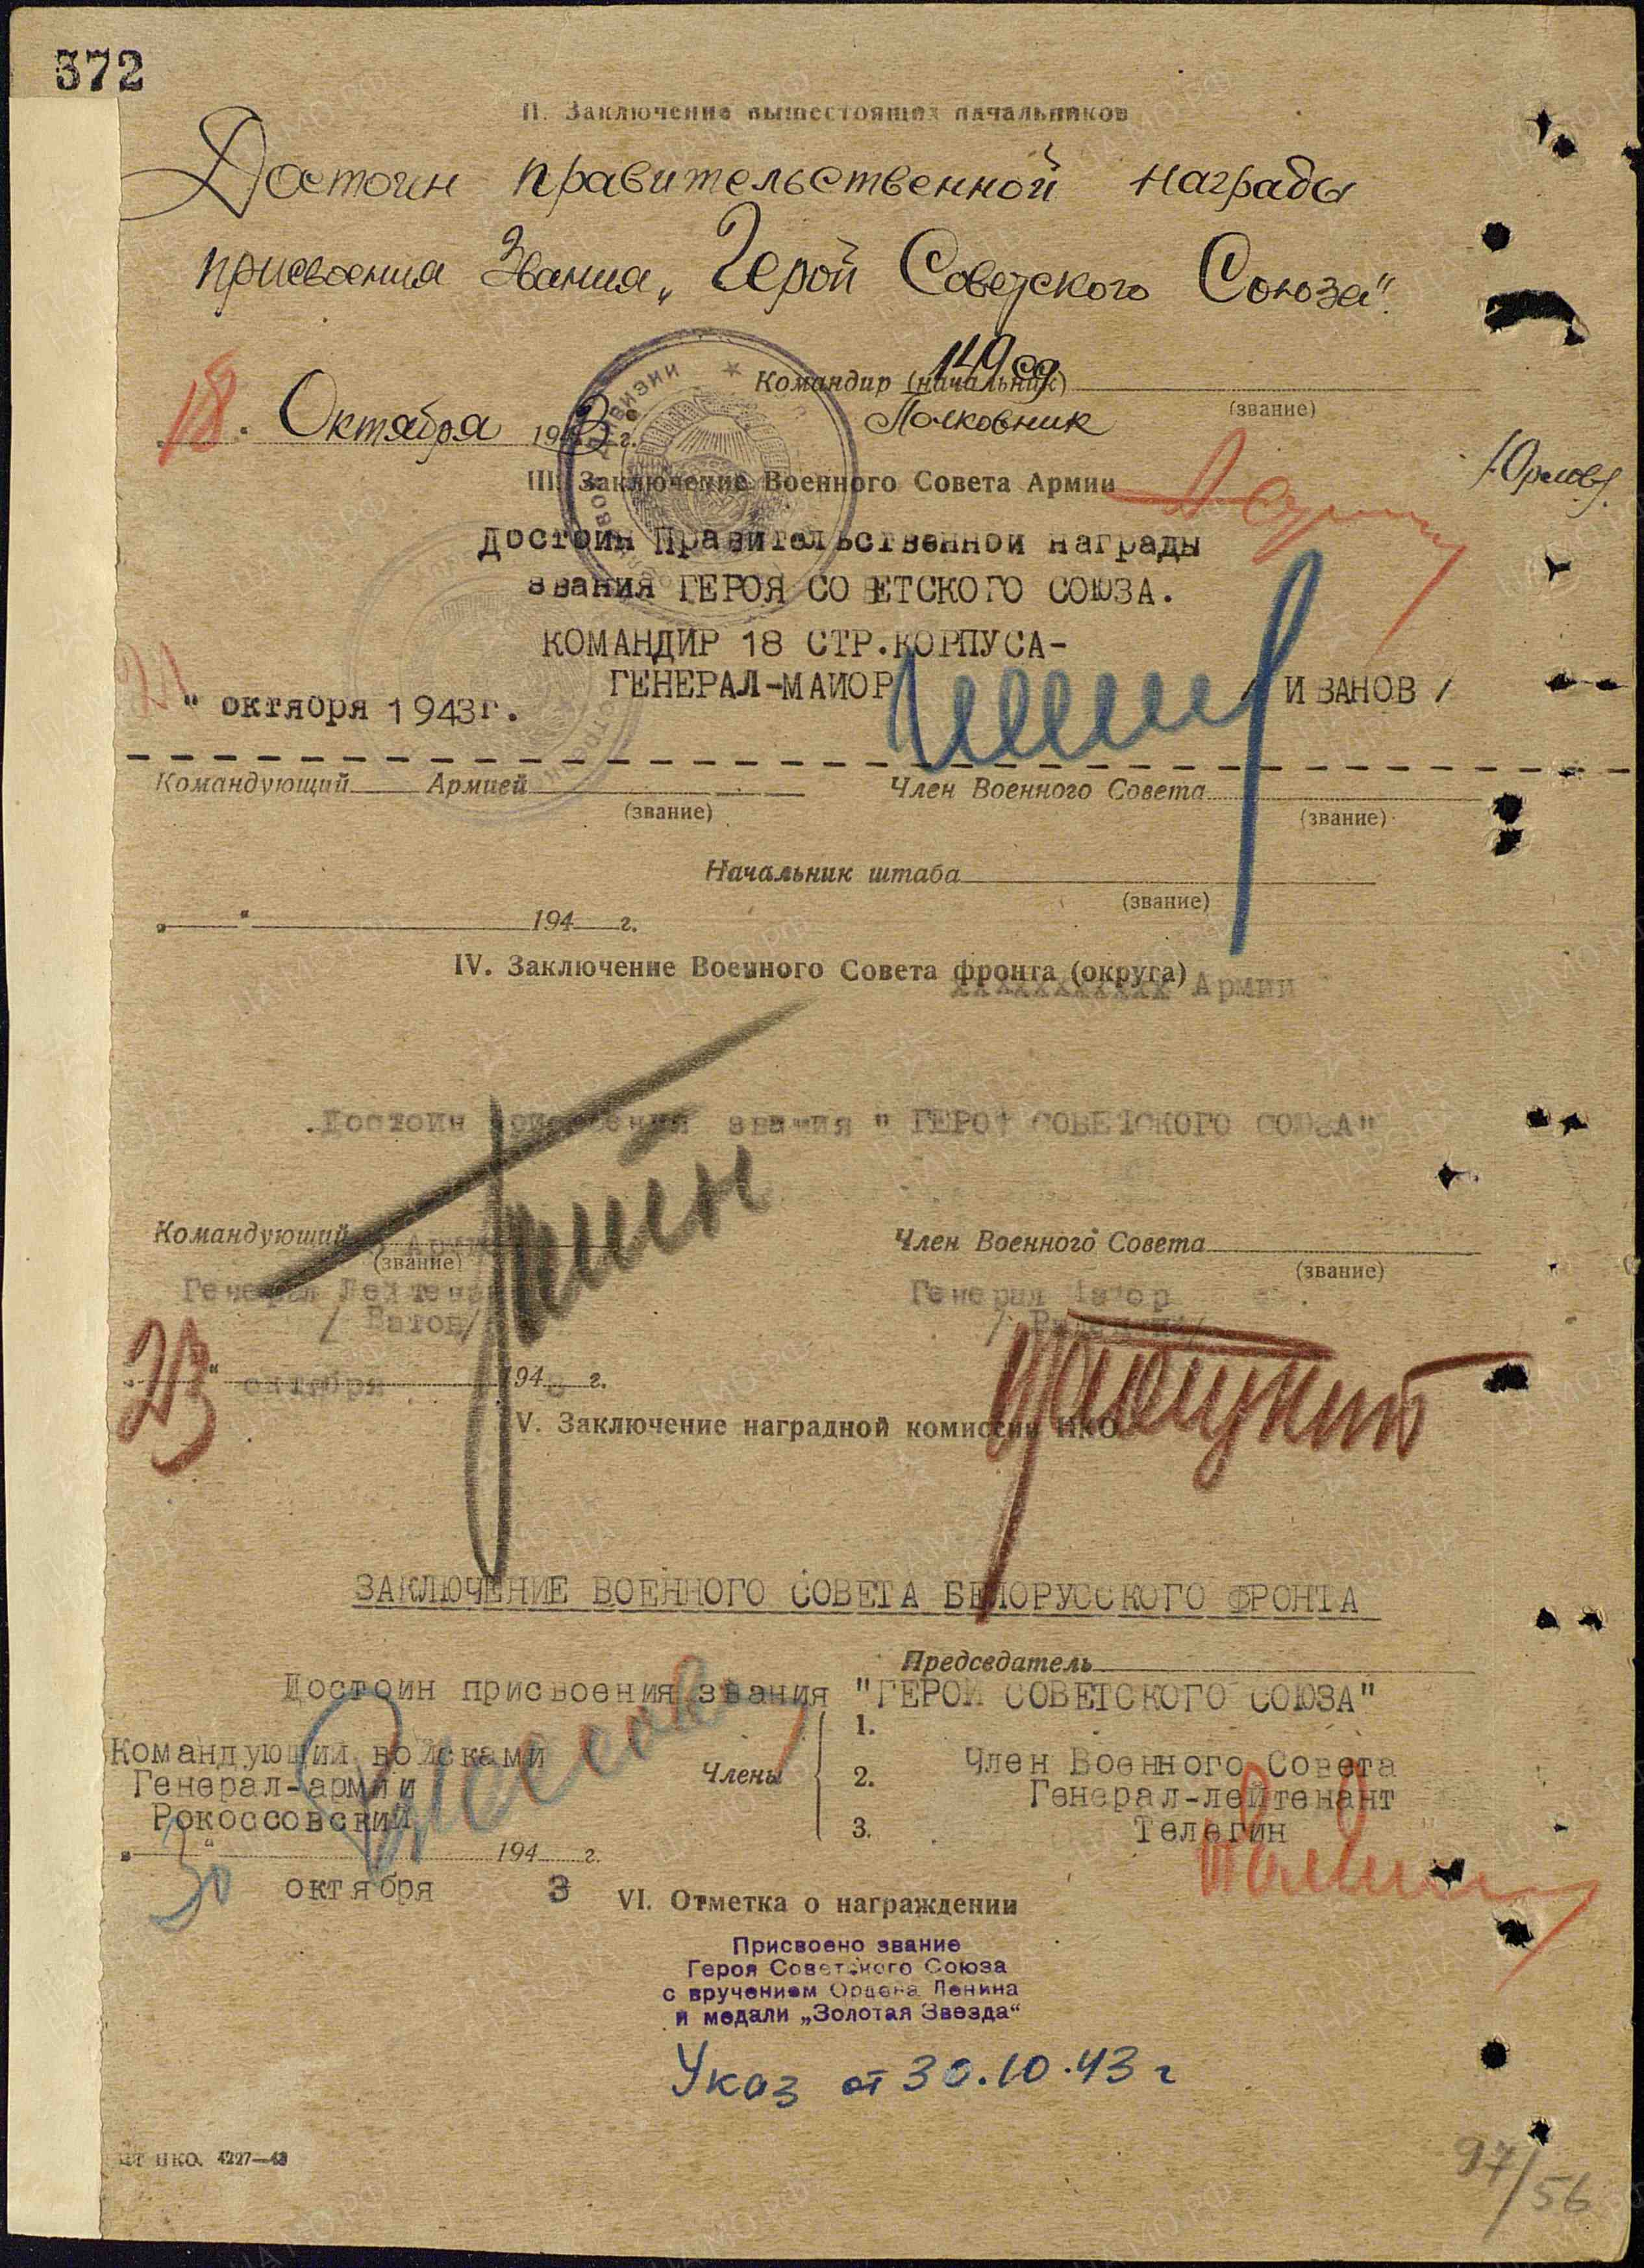 372
II. Заключение вышестоящих начальников
Достоин правительственной награды
присвоения Звания „Герой Советского Союза“.
Командир (начальник) 149 сд
(звание)
18 Октября 1943 г.
Полковник
/Орлов/
III. Заключение Военного Совета Армии
Достоин Правительственной награды
звания ГЕРОЯ СОВЕТСКОГО СОЮЗА.
КОМАНДИР 18 СТР.КОРПУСА-
ГЕНЕРАЛ-МАЙОР / ИВАНОВ /
" октября 1943г.
Командующий Армией
(звание)
Член Военного Совета
(звание)
Начальник штаба
(звание)
„ “ 194 г.
IV. Заключение Военного Совета фронта (округа) Армии
Достоин присвоения звания " ГЕРОЙ СОВЕТСКОГО СОЮЗА"
Командующий
(звание)
Член Военного Совета
(звание)
Генерал Лейтенант
/ Батов/
Генерал Майор
23 " октября 194 г.
V. Заключение наградной комиссии НКО
ЗАКЛЮЧЕНИЕ ВОЕННОГО СОВЕТА БЕЛОРУССКОГО ФРОНТА
Председатель
Достоин присвоения звания "ГЕРОЙ СОВЕТСКОГО СОЮЗА"
Командующий войсками
Генерал-армии
Рокоссовский
Члены
1.
2.
3.
Член Военного Совета
Генерал-лейтенант
Телегин
„ “ 194 г.
30 октября 3
VI. Отметка о награждении
Присвоено звание
Героя Советского Союза
с вручением Ордена Ленина
и медали „Золотая Звезда“
Указ от 30.10.43 г
НКО. 4227—43
97/56